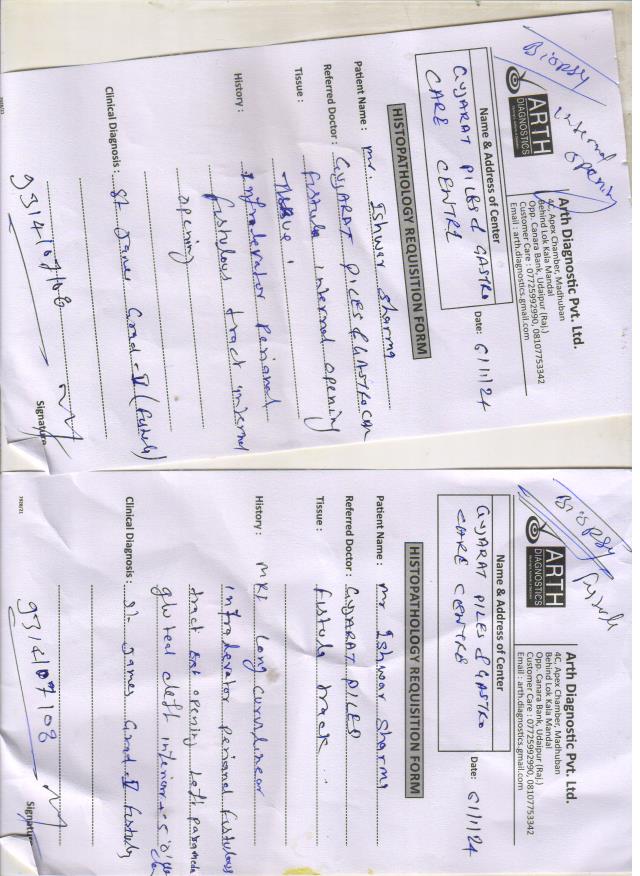 Biopsy
Internal
opening
ARTH
DIAGNOSTICS
Arth Diagnostic Pvt. Ltd.
4C, Apex Chamber, Madhuban
Behind Lok Kala Mandal
Opp. Canara Bank, Udaipur (Raj.)
Customer Care : 07725992990, 08107753342
Email : arth.diagnostics.gmail.com
Name & Address of Center
GUJARAT PILES & GASTRO
CARE CENTRE
Date: 6/1/24
HISTOPATHOLOGY REQUISITION FORM
Patient Name : Mr. Ishwar Sharma
Referred Doctor : GUJARAT PILES & GASTRO
Tissue : fistula internal opening
History : Infralevator perianal
fistulous tract internal
opening
Clinical Diagnosis : St. James Grad-
9314107108
Signature
7928/21
Biopsy
ARTH
DIAGNOSTICS
Arth Diagnostic Pvt. Ltd.
4C, Apex Chamber, Madhuban
Behind Lok Kala Mandal
Opp. Canara Bank, Udaipur (Raj.)
Customer Care : 07725992990, 08107753342
Email : arth.diagnostics.gmail.com
Name & Address of Center
GUJARAT PILES & GASTRO
CARE CENTRE
Date: 6/1/24
HISTOPATHOLOGY REQUISITION FORM
Patient Name : Mr Ishwar Sharma
Referred Doctor : GUJARAT PILES
Tissue : fistula track
History : MRI long curvilinear
infralevator perianal fistulous
tract opening left
gluteal cleft
Clinical Diagnosis : St James Grad- fistula
9314107108
Signature
7928/21